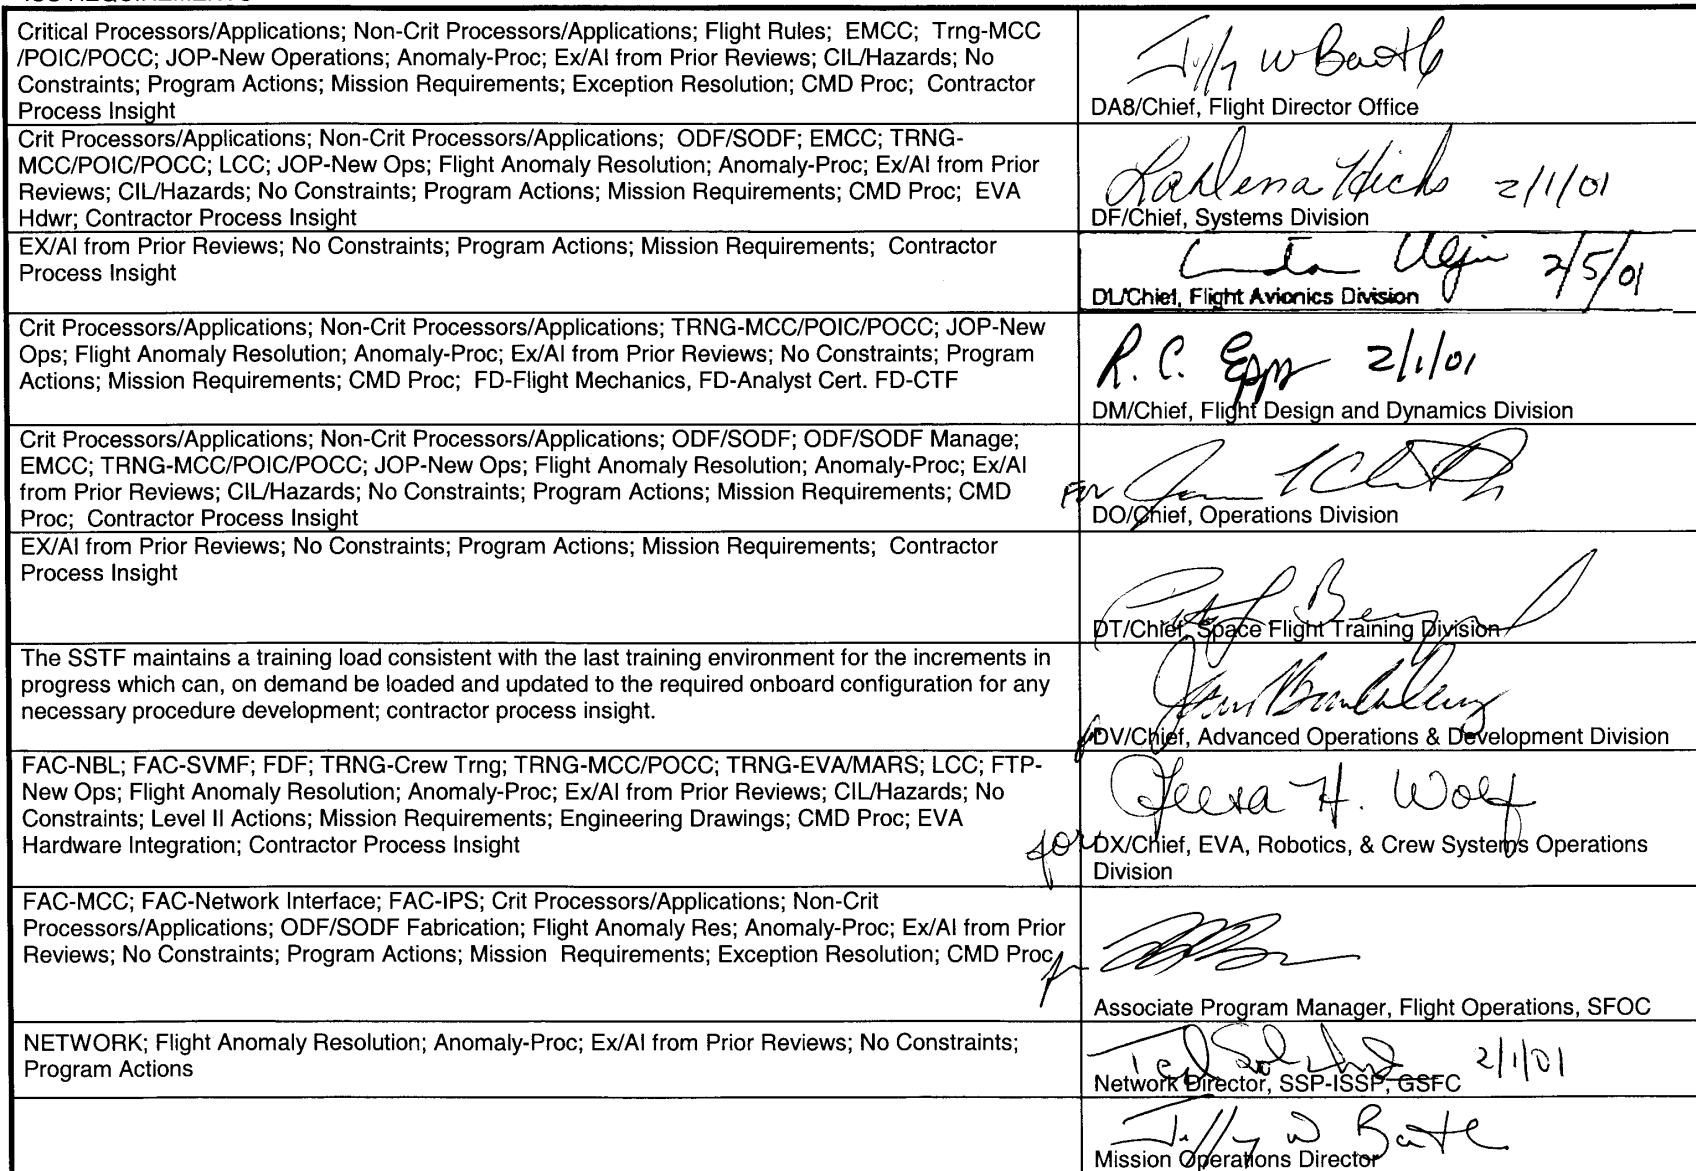 ISS REQUIREMENTS
Critical Processors/Applications; Non-Crit Processors/Applications; Flight Rules; EMCC; Trng-MCC
/POIC/POCC; JOP-New Operations; Anomaly-Proc; Ex/AI from Prior Reviews; CIL/Hazards; No
Constraints; Program Actions; Mission Requirements; Exception Resolution; CMD Proc; Contractor
Process Insight
W
DA8/Chief, Flight Director Office
Crit Processors/Applications; Non-Crit Processors/Applications; ODF/SODF; EMCC; TRNG-
MCC/POIC/POCC; LCC; JOP-New Ops; Flight Anomaly Resolution; Anomaly-Proc; Ex/AI from Prior
Reviews; CIL/Hazards; No Constraints; Program Actions; Mission Requirements; CMD Proc; EVA
Hdwr; Contractor Process Insight
Hicks 2/1/01
DF/Chief, Systems Division
EX/AI from Prior Reviews; No Constraints; Program Actions; Mission Requirements; Contractor
Process Insight
2/5/01
DL/Chief, Flight Avionics Division
Crit Processors/Applications; Non-Crit Processors/Applications; TRNG-MCC/POIC/POCC; JOP-New
Ops; Flight Anomaly Resolution; Anomaly-Proc; Ex/AI from Prior Reviews; No Constraints; Program
Actions; Mission Requirements; CMD Proc; FD-Flight Mechanics, FD-Analyst Cert. FD-CTF
R. C. Epp 2/1/01
DM/Chief, Flight Design and Dynamics Division
Crit Processors/Applications; Non-Crit Processors/Applications; ODF/SODF; ODF/SODF Manage;
EMCC; TRNG-MCC/POIC/POCC; JOP-New Ops; Flight Anomaly Resolution; Anomaly-Proc; Ex/AI
from Prior Reviews; CIL/Hazards; No Constraints; Program Actions; Mission Requirements; CMD
Proc; Contractor Process Insight
For
DO/Chief, Operations Division
EX/AI from Prior Reviews; No Constraints; Program Actions; Mission Requirements; Contractor
Process Insight
DT/Chief, Space Flight Training Division
The SSTF maintains a training load consistent with the last training environment for the increments in
progress which can, on demand be loaded and updated to the required onboard configuration for any
necessary procedure development; contractor process insight.
DV/Chief, Advanced Operations & Development Division
FAC-NBL; FAC-SVMF; FDF; TRNG-Crew Trng; TRNG-MCC/POCC; TRNG-EVA/MARS; LCC; FTP-
New Ops; Flight Anomaly Resolution; Anomaly-Proc; Ex/AI from Prior Reviews; CIL/Hazards; No
Constraints; Level II Actions; Mission Requirements; Engineering Drawings; CMD Proc; EVA
Hardware Integration; Contractor Process Insight
H. Wolf
for DX/Chief, EVA, Robotics, & Crew Systems Operations
Division
FAC-MCC; FAC-Network Interface; FAC-IPS; Crit Processors/Applications; Non-Crit
Processors/Applications; ODF/SODF Fabrication; Flight Anomaly Res; Anomaly-Proc; Ex/AI from Prior
Reviews; No Constraints; Program Actions; Mission Requirements; Exception Resolution; CMD Proc
Associate Program Manager, Flight Operations, SFOC
NETWORK; Flight Anomaly Resolution; Anomaly-Proc; Ex/AI from Prior Reviews; No Constraints;
Program Actions
2/1/01
Network Director, SSP-ISSP, GSFC
W
Mission Operations Director